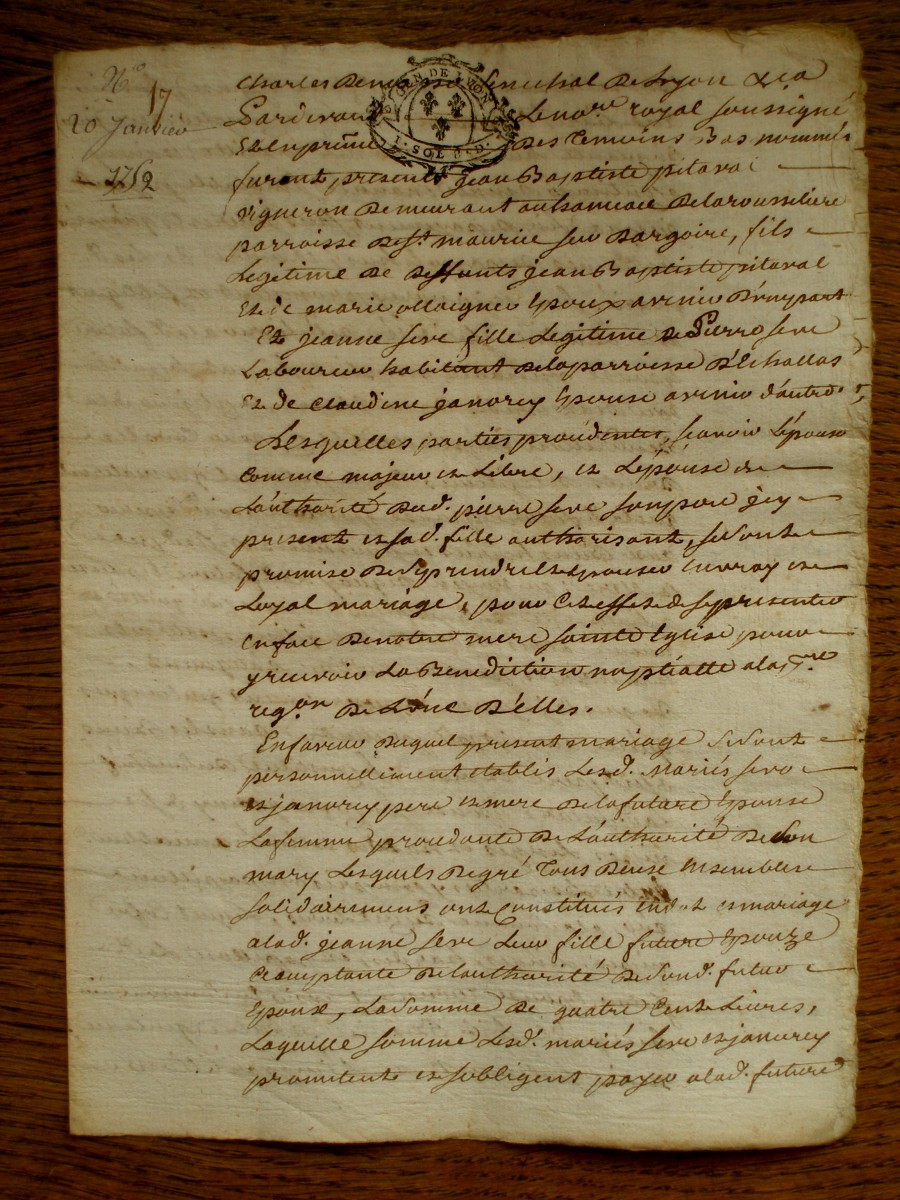 N.º 17
20 Janvier
1752
GEN DE LYON
1. SOL
Charles Senechal de Lyon & ca
Pardevant Le no.re royal soussigné
Et en pr̃nce des temoins Bas nommés
furent presents jean Baptiste pitaval
vigneron demeurant au hameau de la rousseliere
parroisse de S.t maurice sur dargoire, fils
Legitime de deffunts jean Baptiste pitaval
Et de marie Epoux avenir d'une part
Et jeanne serve fille Legitime de Pierre serve
Laboureur habitant de la parroisse d'Echallas
Et de claudine janvrey Epouse avenir d'autre
Lesquelles parties procédentes, scavoir L'époux
comme majeur et Libre, et L'épouse de
L'authorité dud. pierre serve son pere jcy
present et sad. fille authorisant, se sont
promise de se prendre Et epouser en vray et
Loyal mariage, pour cet effet de se presenter
en face de notre mere sainte Eglise pour
y recevoir La Benediction nuptialle a la p.re
reg.on de L'une d'Elles.
En faveur duquel present mariage se sont
personnellement etablis Lesd. Mariés serve
et janvrey pere et mere de la future Epouse
La femme procedante de L'authorité de son
mary Lesquels de gré tous deux Ensemble
solidairement ont Constitués en dot et mariage
a lad. jeanne serve Leur fille future Epouze
acceuptante de l'authorité de sond. futur
Epoux, La somme de quatre Cent Livres,
Laquelle somme Lesd. mariés serve et janvrey
promitent et s'obligent payer a lad. future